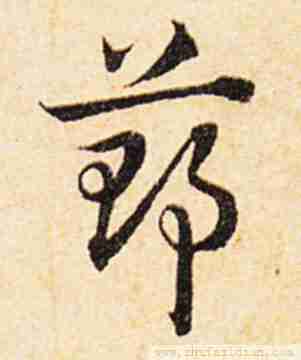 節
www.shufazidian.com